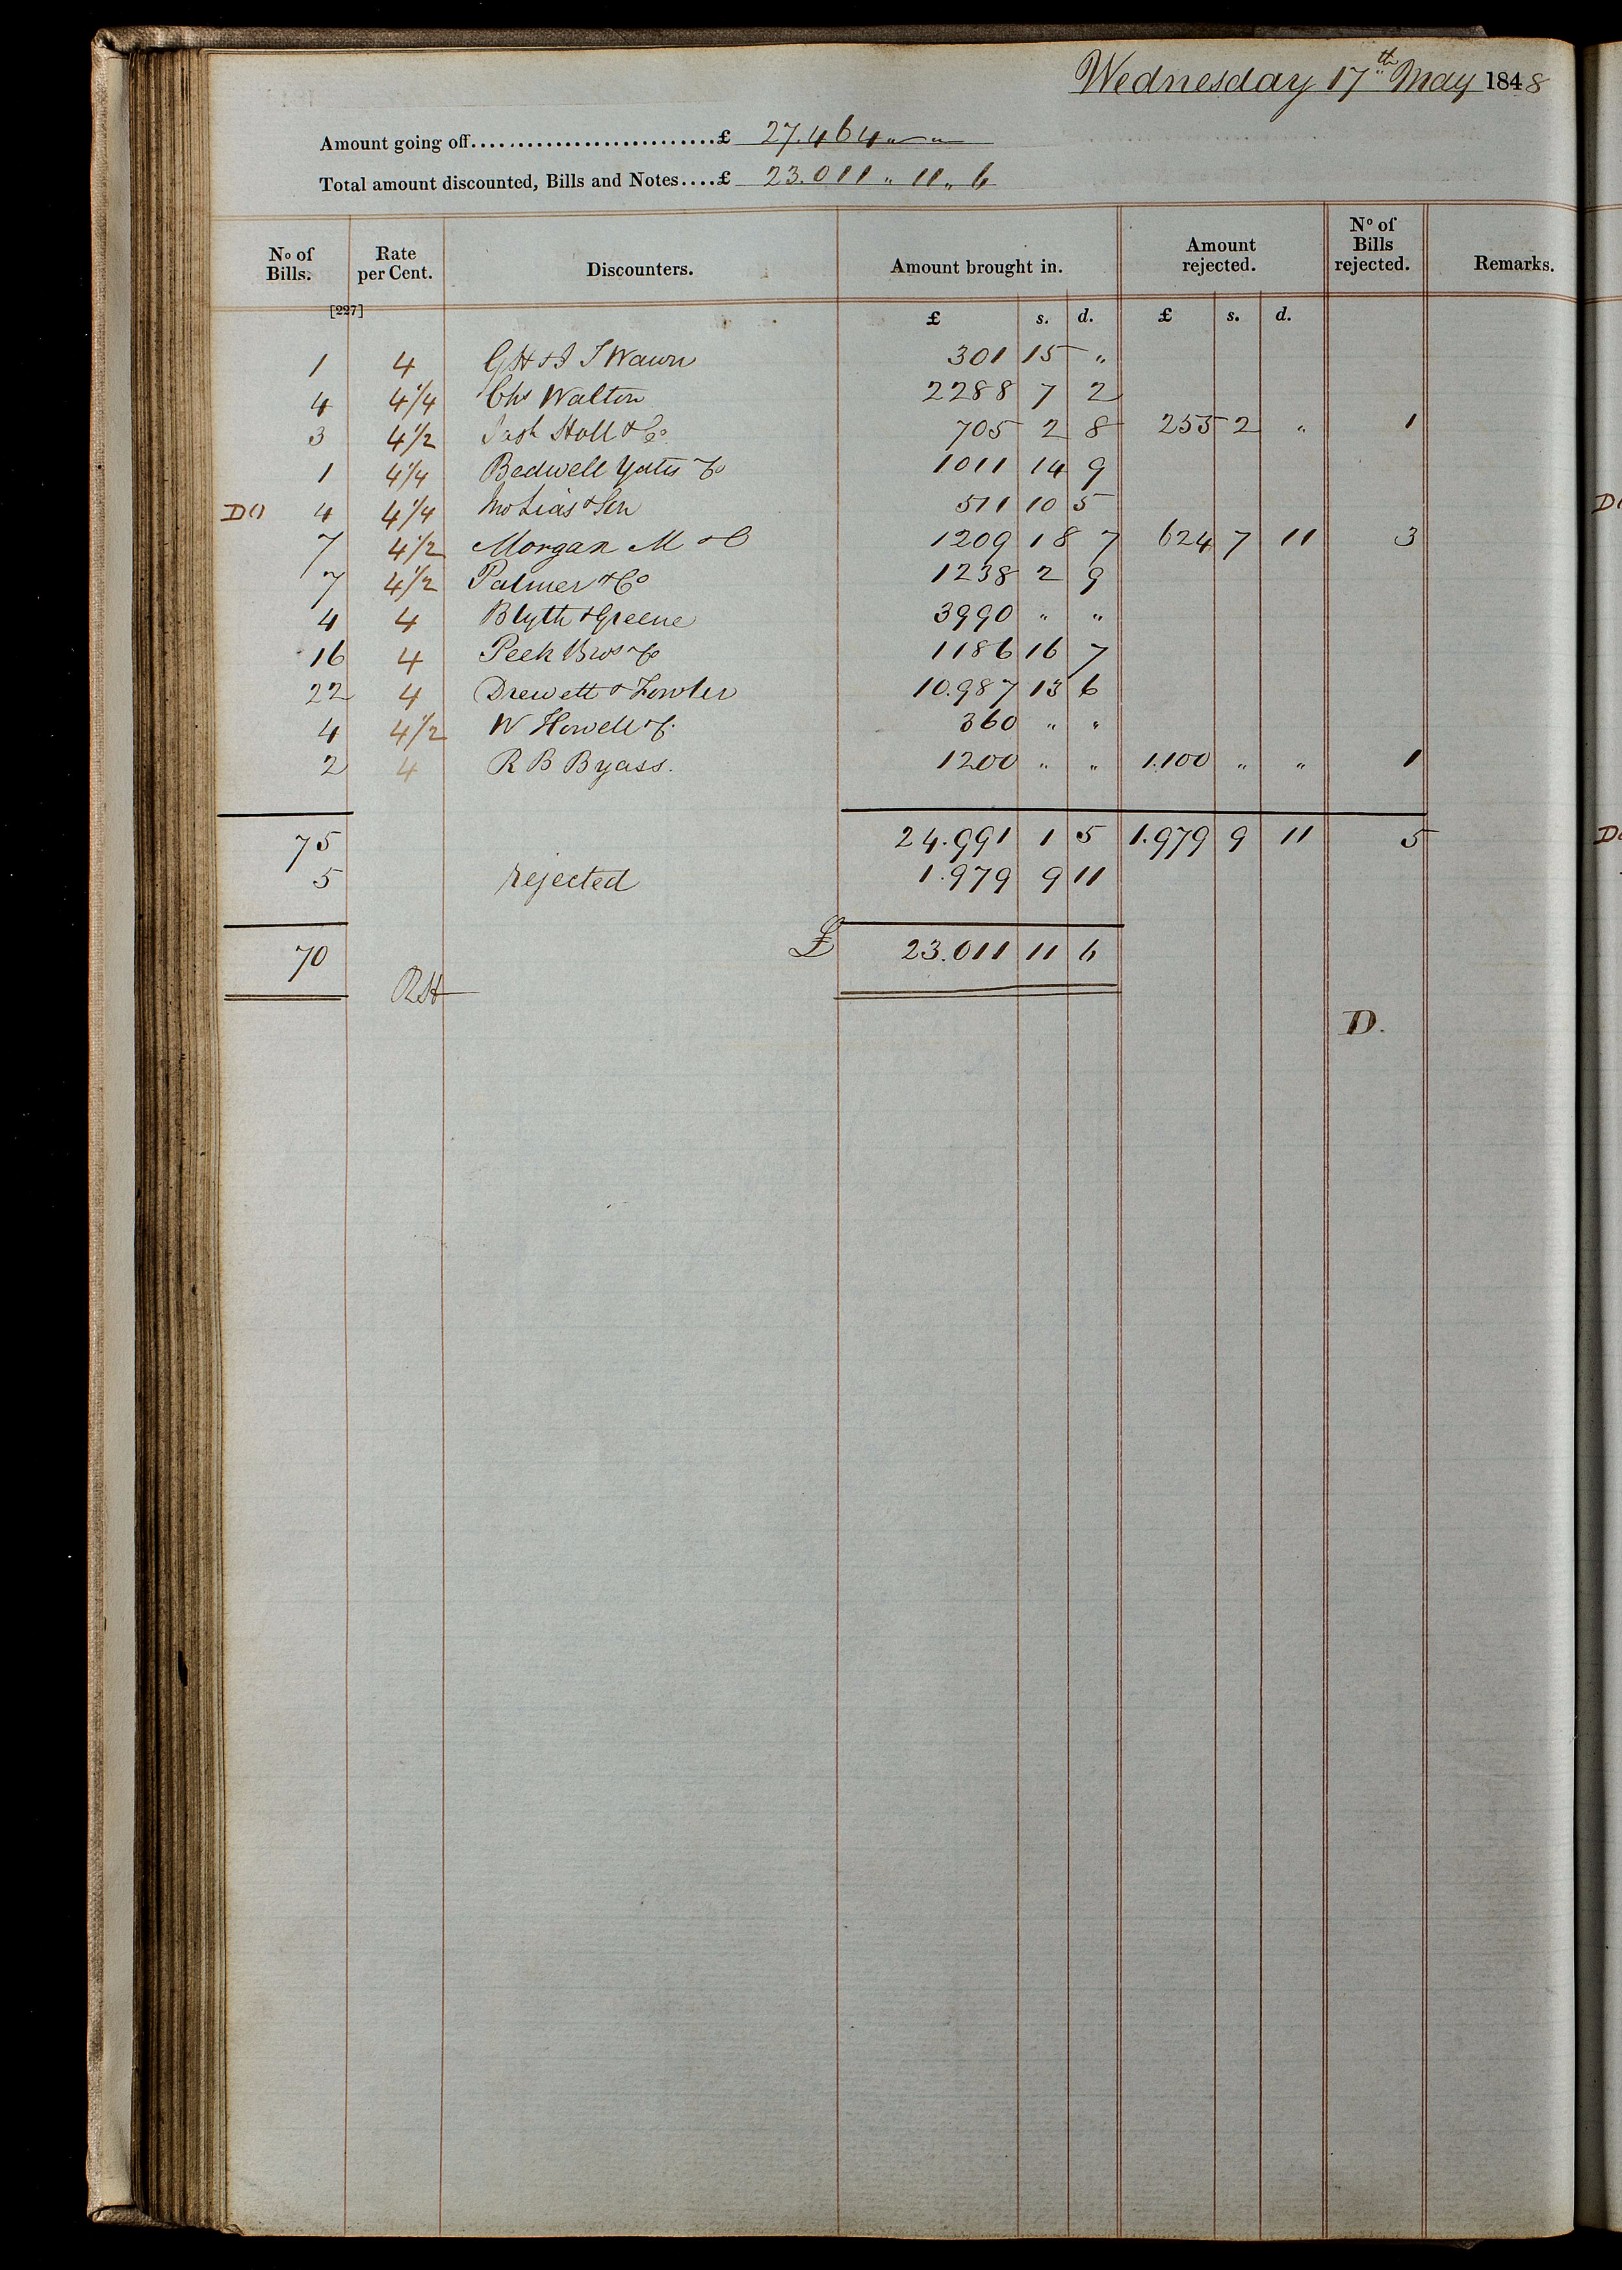 Wednesday 17th May 1848
Amount going off...........................£ 27.464 „ — „ —
Total amount discounted, Bills and Notes....£ 23.011 „ 11 „ 6
No of Bills. Rate per Cent. Discounters. Amount brought in. Amount rejected. No of Bills rejected. Remarks.
[227] £ s. d. £ s. d.
1 4 GH & J J Wawn 301 15 „
4 4 1/4 Chs Walton 2288 7 2
3 4 1/2 Josh Stoll & Co 705 2 8 255 2 „ 1
1 4 1/4 Bedwell Yates & Co 1011 14 9
DO 4 4 1/4 Jno Lias & Son 511 10 5
7 4 1/2 Morgan M & C 1209 18 7 624 7 11 3
7 4 1/2 Palmer & Co 1238 2 9
4 4 Blyth & Greene 3990 „ „
16 4 Peek Bros & Co 1186 16 7
22 4 Drewett & Fowler 10.987 13 6
4 4 1/2 W Howell & C. 360 „ „
2 4 R B Byass. 1200 „ „ 1.100 „ „ 1
75 24.991 1 5 1.979 9 11 5
5 rejected 1.979 9 11
70 £ 23.011 11 6
RH
D.